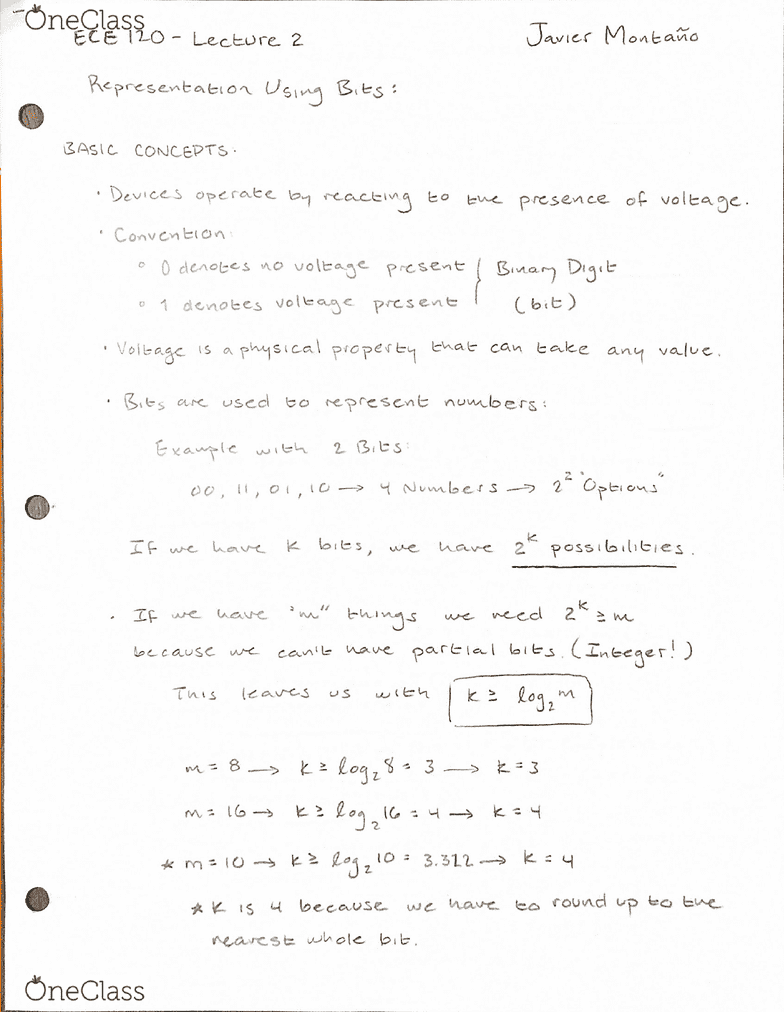 OneClass
ECE 120 - Lecture 2 Javier Montaño
Representation Using Bits:
BASIC CONCEPTS.
· Devices operate by reacting to the presence of voltage.
· Convention:
° 0 denotes no voltage present } Binary Digit
° 1 denotes voltage present (bit)
· Voltage is a physical property that can take any value.
· Bits are used to represent numbers:
Example with 2 Bits:
00, 11, 01, 10 → 4 Numbers → 2² "Options"
If we have k bits, we have 2ᵏ possibilities.
· If we have "m" things we need 2ᵏ ≥ m
because we can't have partial bits. (Integer!)
This leaves us with k ≥ log₂ m
m = 8 → k ≥ log₂ 8 = 3 → k = 3
m = 16 → k ≥ log₂ 16 = 4 → k = 4
* m = 10 → k ≥ log₂ 10 = 3.312 → k = 4
* k is 4 because we have to round up to the
nearest whole bit.
OneClass